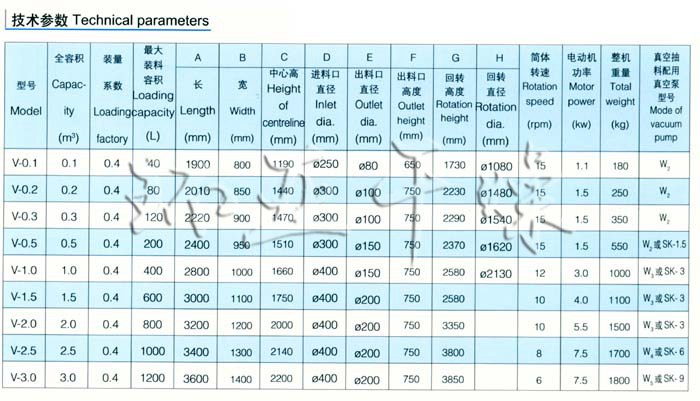 技术参数 Technical parameters
型号 Model 全容积 Capac-ity (m³) 装量系数 Loading factory 最大装料容积 Loading capacity (L) A 长 Length (mm) B 宽 Width (mm) C 中心高 Height of centreline (mm) D 进料口直径 Inlet dia. (mm) E 出料口直径 Outlet dia. (mm) F 出料口高度 Outlet height (mm) G 回转高度 Rotation height (mm) H 回转直径 Rotation dia. (mm) 筒体转速 Rotation speed (rpm) 电动机功率 Motor power (kw) 整机重量 Total weight (kg) 真空抽料配用真空泵型号 Mode of vacuum pump
V-0.1 0.1 0.4 40 1900 800 1190 ø250 ø80 650 1730 ø1080 15 1.1 180 W₂
V-0.2 0.2 0.4 80 2010 850 1440 ø300 ø100 750 2230 ø1480 15 1.5 250 W₂
V-0.3 0.3 0.4 120 2220 900 1470 ø300 ø100 750 2290 ø1540 15 1.5 350 W₂
V-0.5 0.5 0.4 200 2400 950 1510 ø300 ø150 750 2370 ø1620 15 1.5 550 W₂或SK-1.5
V-1.0 1.0 0.4 400 2800 1000 1660 ø400 ø150 750 2580 ø2130 12 3.0 1000 W₃或SK-3
V-1.5 1.5 0.4 600 3000 1100 1750 ø400 ø200 750 2580 10 4.0 1100 W₃或SK-3
V-2.0 2.0 0.4 800 3200 1200 2000 ø400 ø200 750 3350 10 5.5 1500 W₃或SK-3
V-2.5 2.5 0.4 1000 3400 1300 2140 ø400 ø200 750 3800 8 7.5 1700 W₄或SK-6
V-3.0 3.0 0.4 1200 3600 1400 2200 ø400 ø200 750 3850 6 7.5 1800 W₅或SK-9